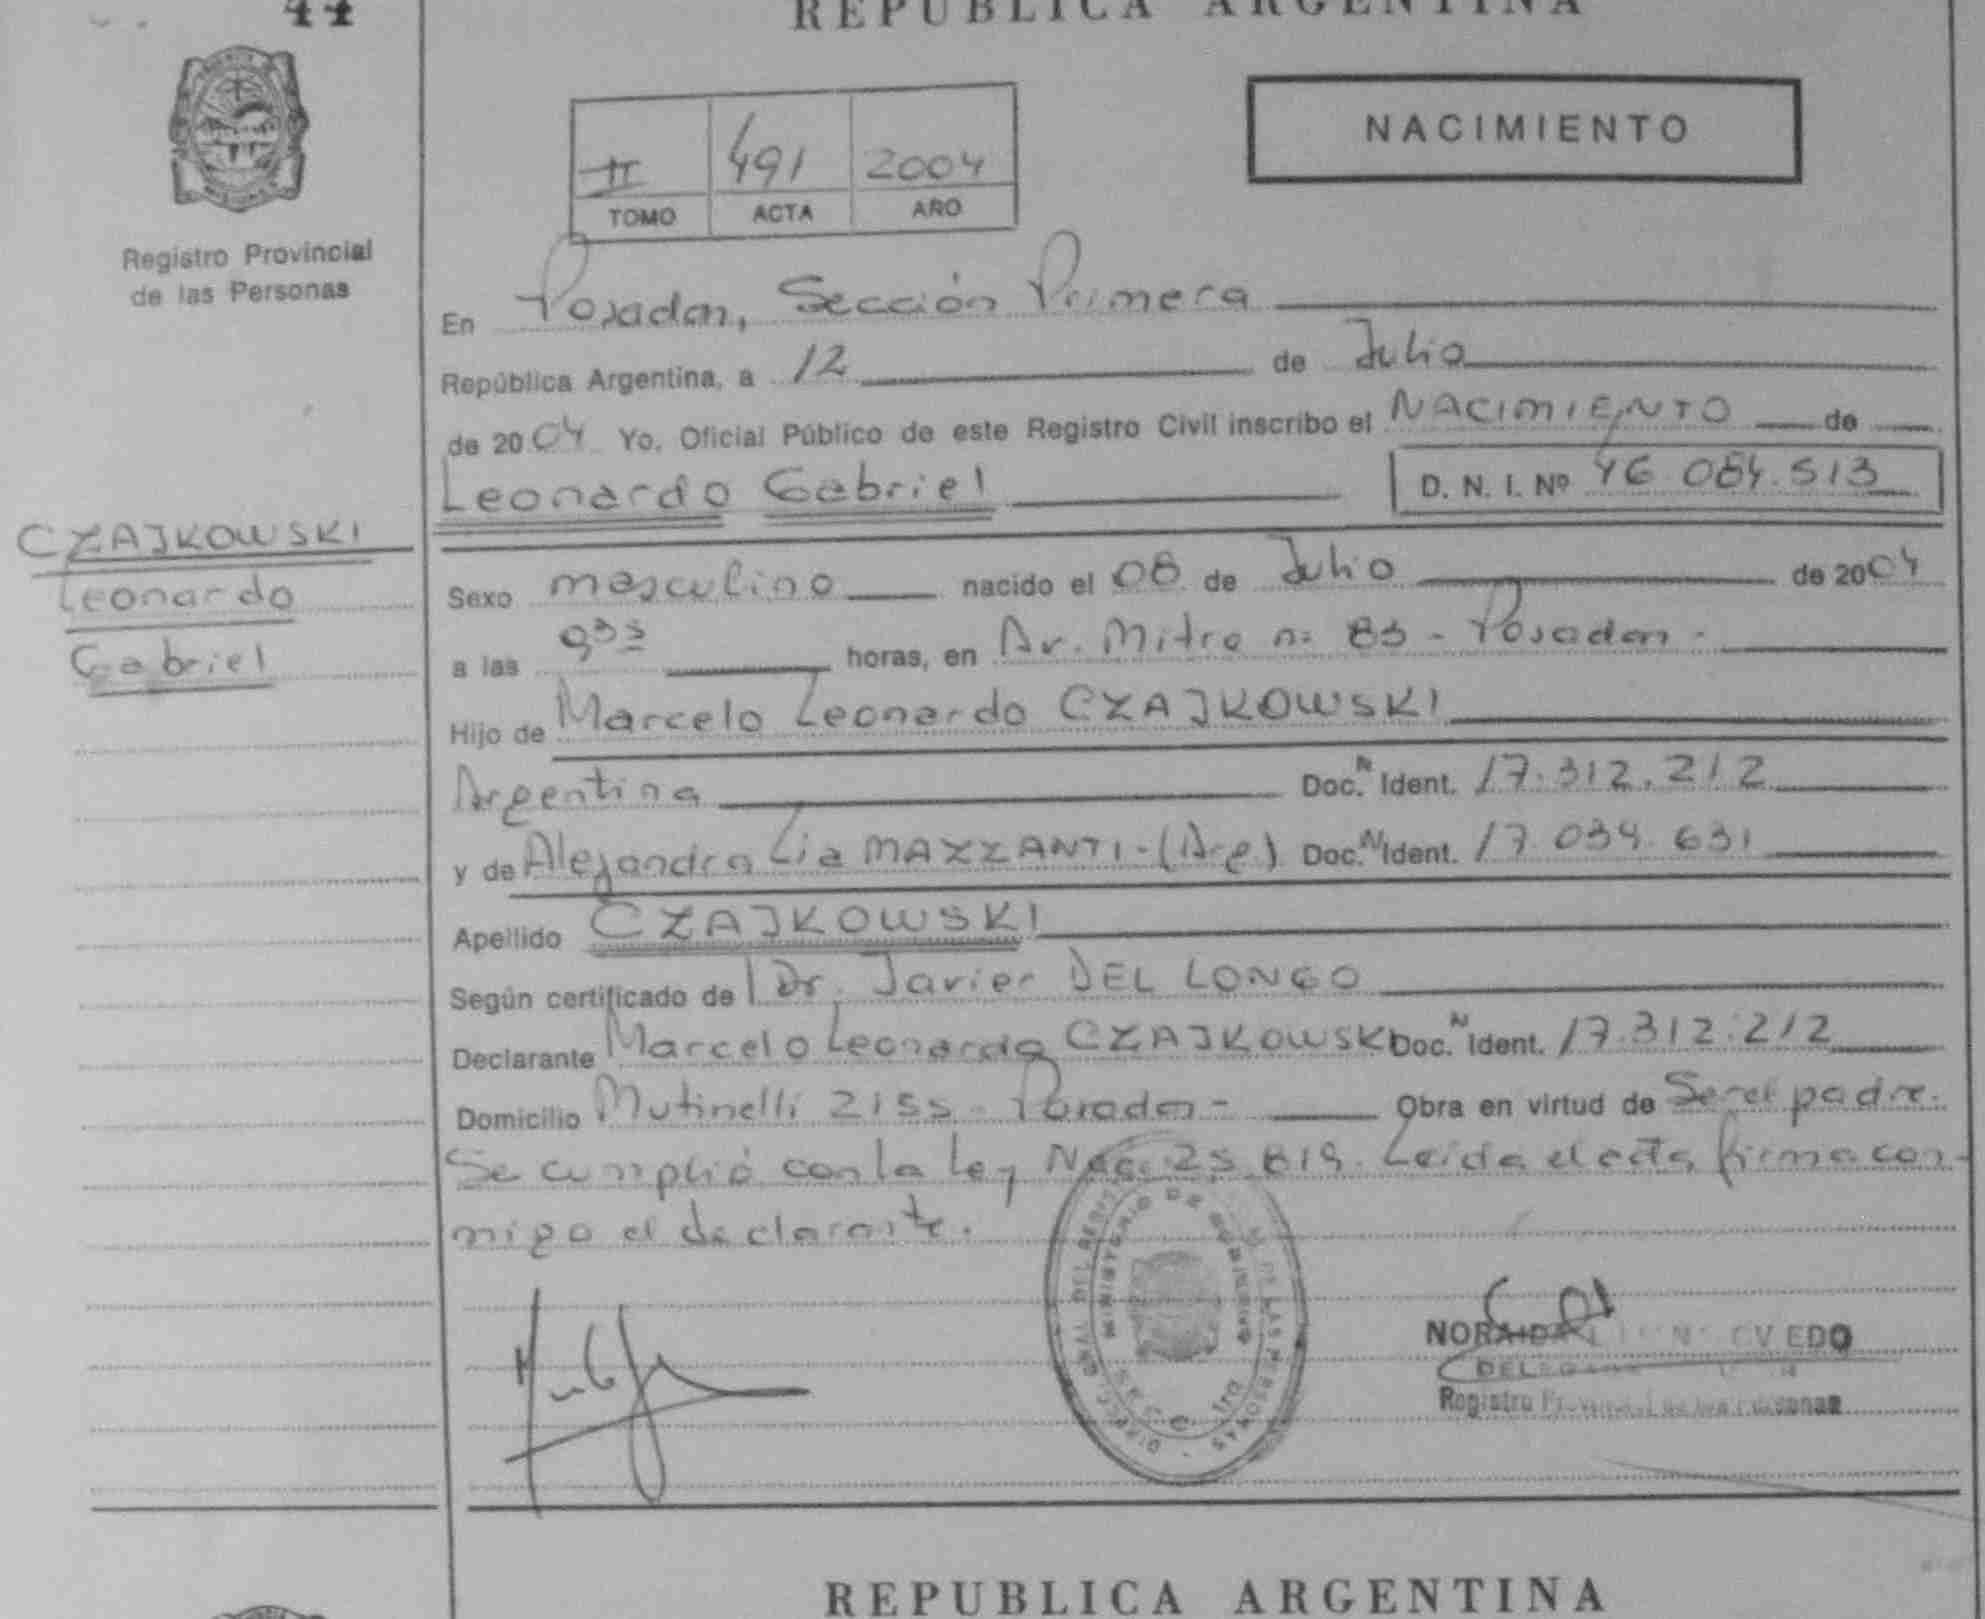 44
REPUBLICA ARGENTINA
Registro Provincial
de las Personas
II 491 2004
TOMO ACTA AÑO
NACIMIENTO
En Posadas, Sección Primera
República Argentina, a 12 de Julio
de 2004 Yo, Oficial Público de este Registro Civil inscribo el NACIMIENTO de
Leonardo Gabriel D. N. I. Nº 46.084.513
CZAJKOWSKI
Leonardo
Gabriel
Sexo masculino nacido el 08 de Julio de 2004
a las 9³⁵ horas, en Av. Mitre nº 83 - Posadas -
Hijo de Marcelo Leonardo CZAJKOWSKI
Argentina Doc. N Ident. 17.312.212
y de Alejandra Lia MAZZANTI - (Arg) Doc. N Ident. 17.034.631
Apellido CZAJKOWSKI
Según certificado de Dr. Javier DEL LONGO
Declarante Marcelo Leonardo CZAJKOWSKI Doc. N Ident. 17.312.212
Domicilio Mutinelli 2155 - Posadas - Obra en virtud de Ser el padre.
Se cumplió con la Ley Nac. 25.819. Leída el acta, firma con-
migo el declarante.
MINISTERIO DE GOBIERNO
REPUBLICA ARGENTINA